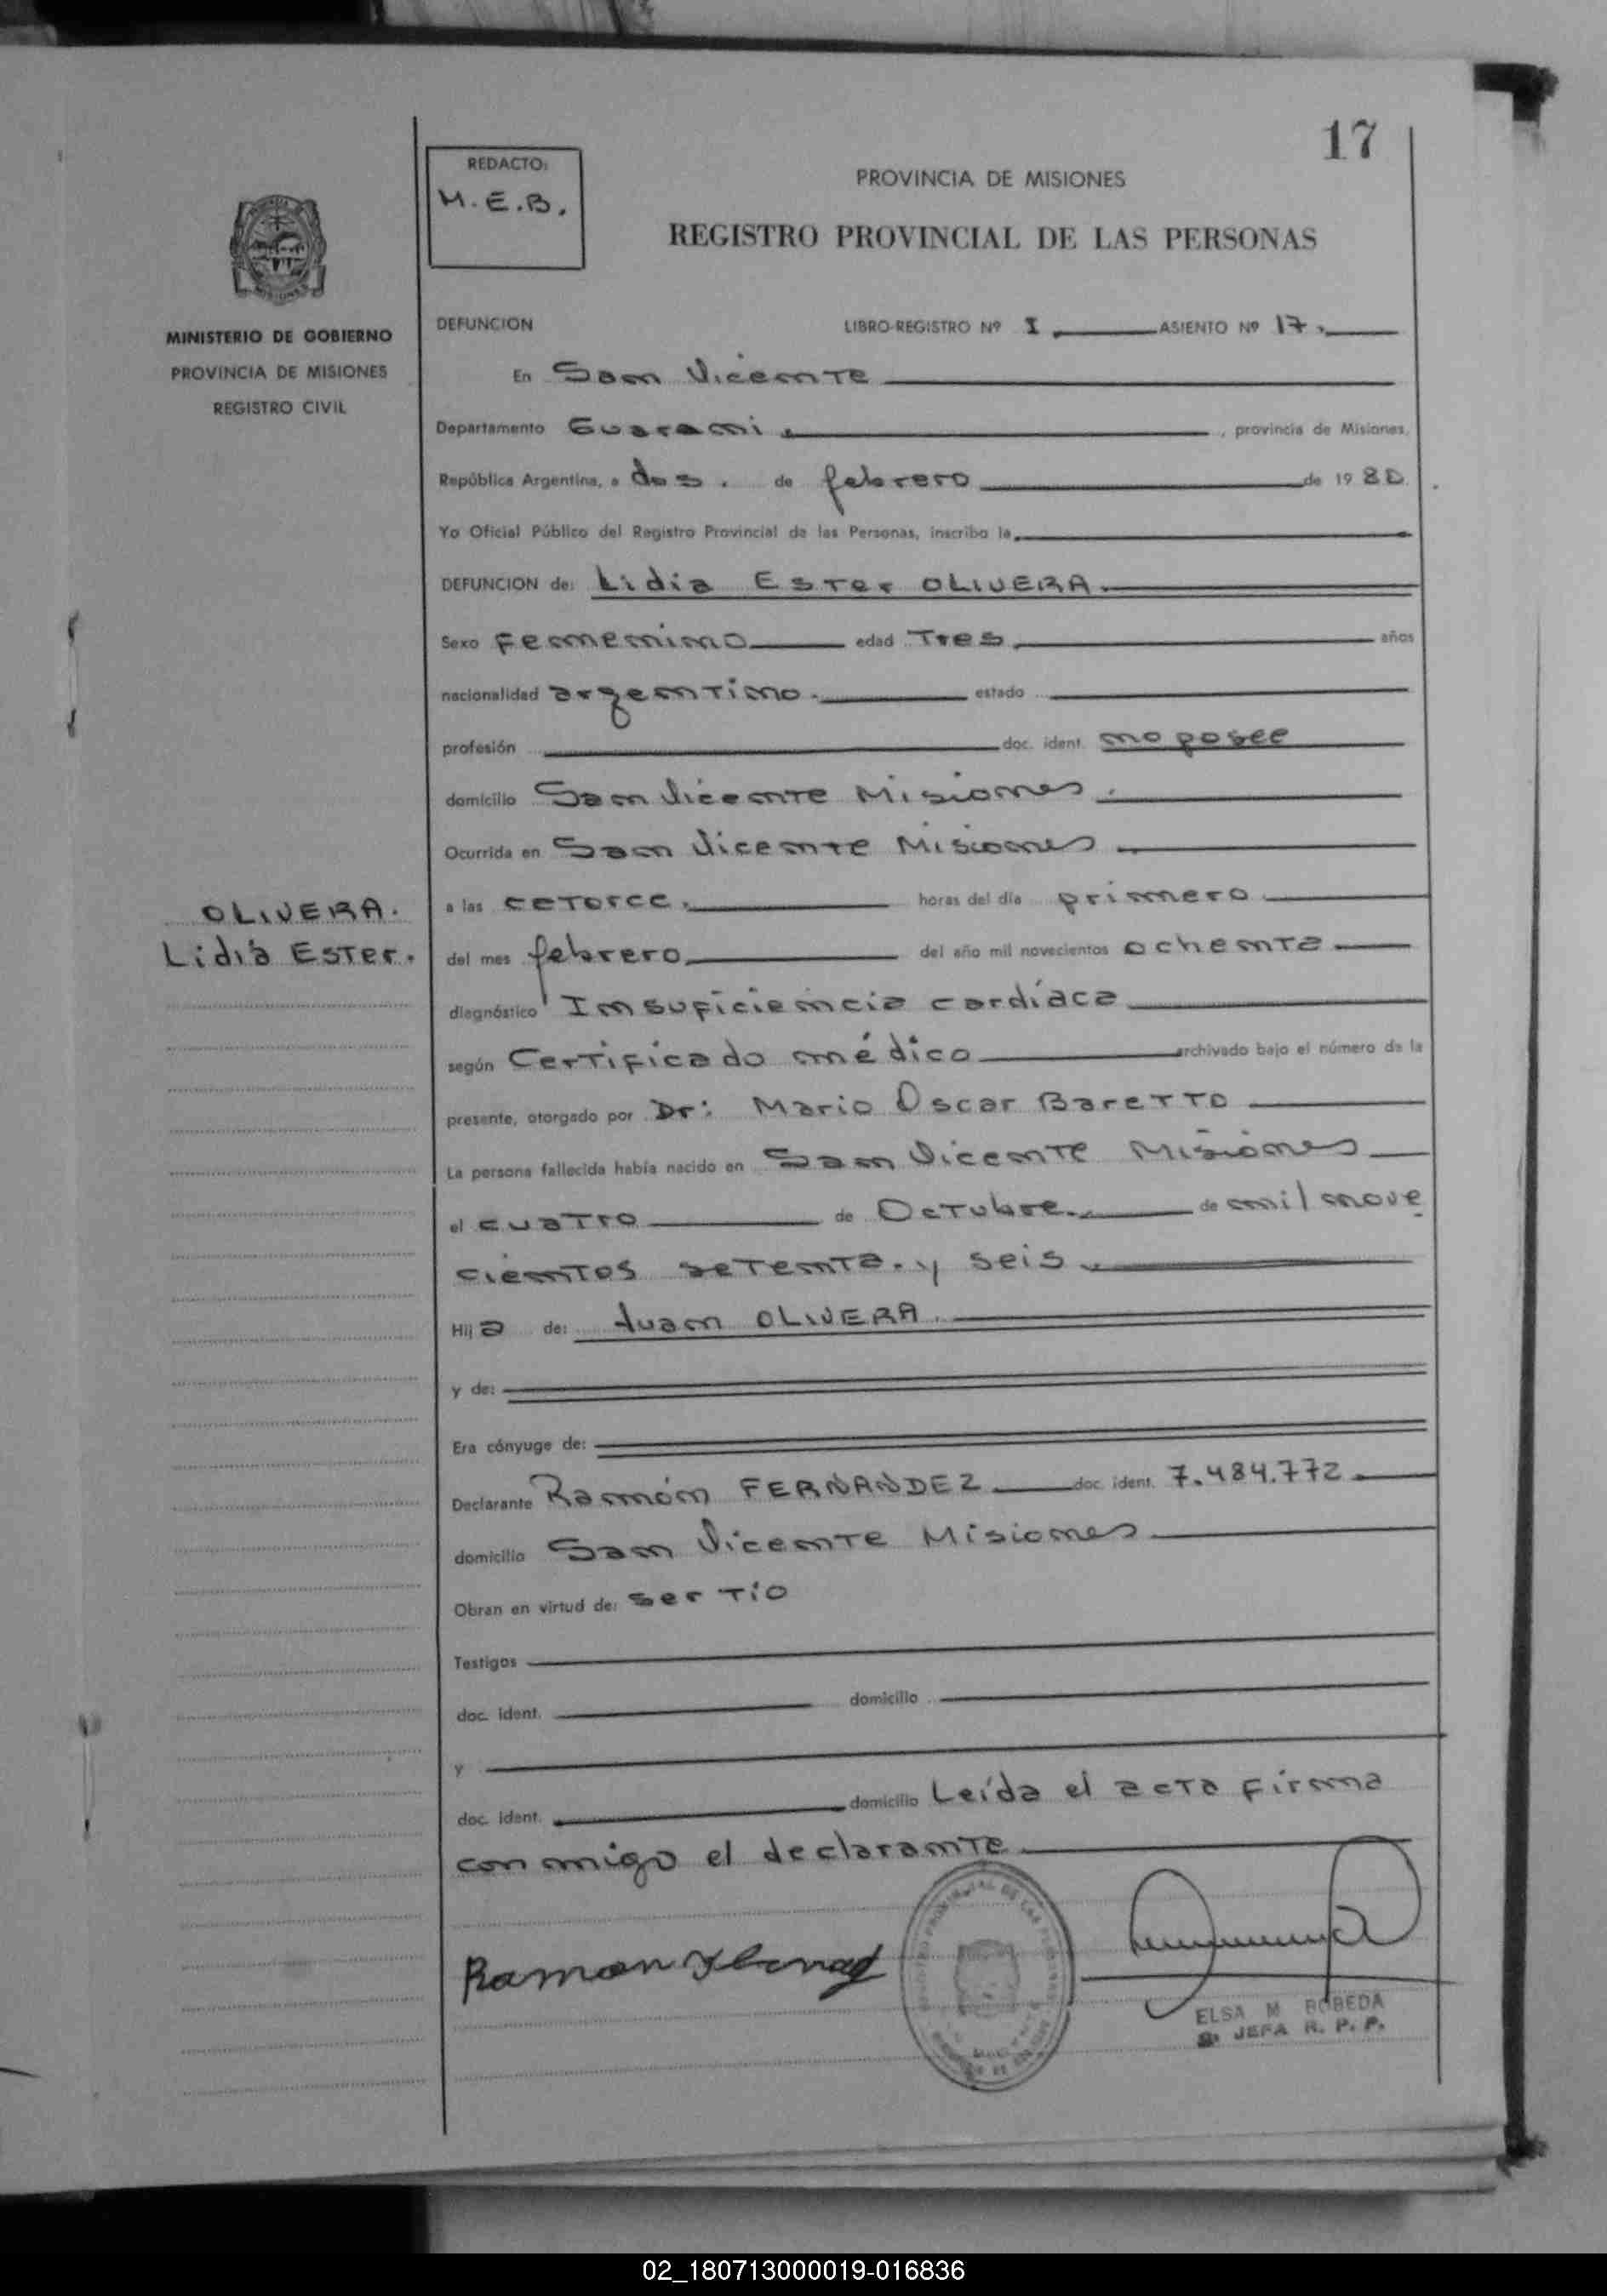 17
REDACTO:
M.E.B.
PROVINCIA DE MISIONES
REGISTRO PROVINCIAL DE LAS PERSONAS
MINISTERIO DE GOBIERNO
PROVINCIA DE MISIONES
REGISTRO CIVIL
DEFUNCION LIBRO-REGISTRO Nº I ASIENTO Nº 17.
En San Vicente
Departamento Guarani. , provincia de Misiones,
República Argentina, a dos. de febrero de 1980.
Yo Oficial Público del Registro Provincial de las Personas, inscribo la
DEFUNCION de: Lidia Ester OLIVERA.
Sexo femenino edad Tres años
nacionalidad argentino. estado
profesión doc. ident. no posee
domicilio San Vicente Misiones.
Ocurrida en San Vicente Misiones
OLIVERA.
Lidia Ester.
a las catorce. horas del día primero
del mes febrero del año mil novecientos ochenta
diagnóstico Insuficiencia cardíaca
según Certificado médico archivado bajo el número de la
presente, otorgado por Dr: Mario Oscar Baretto
La persona fallecida había nacido en San Vicente Misiones
el cuatro de Octubre. de mil nove
cientos setenta. y seis.
Hija de: Juan OLIVERA.
y de:
Era cónyuge de:
Declarante Ramón FERNANDEZ doc. ident. 7.484.772
domicilio San Vicente Misiones
Obran en virtud de: ser tío
Testigos
doc. ident. domicilio
y
doc. ident. domicilio Leída el acta firma
con migo el declarante
Ramon
ELSA M BOBEDA
JEFA R. P. P.
02_180713000019-016836